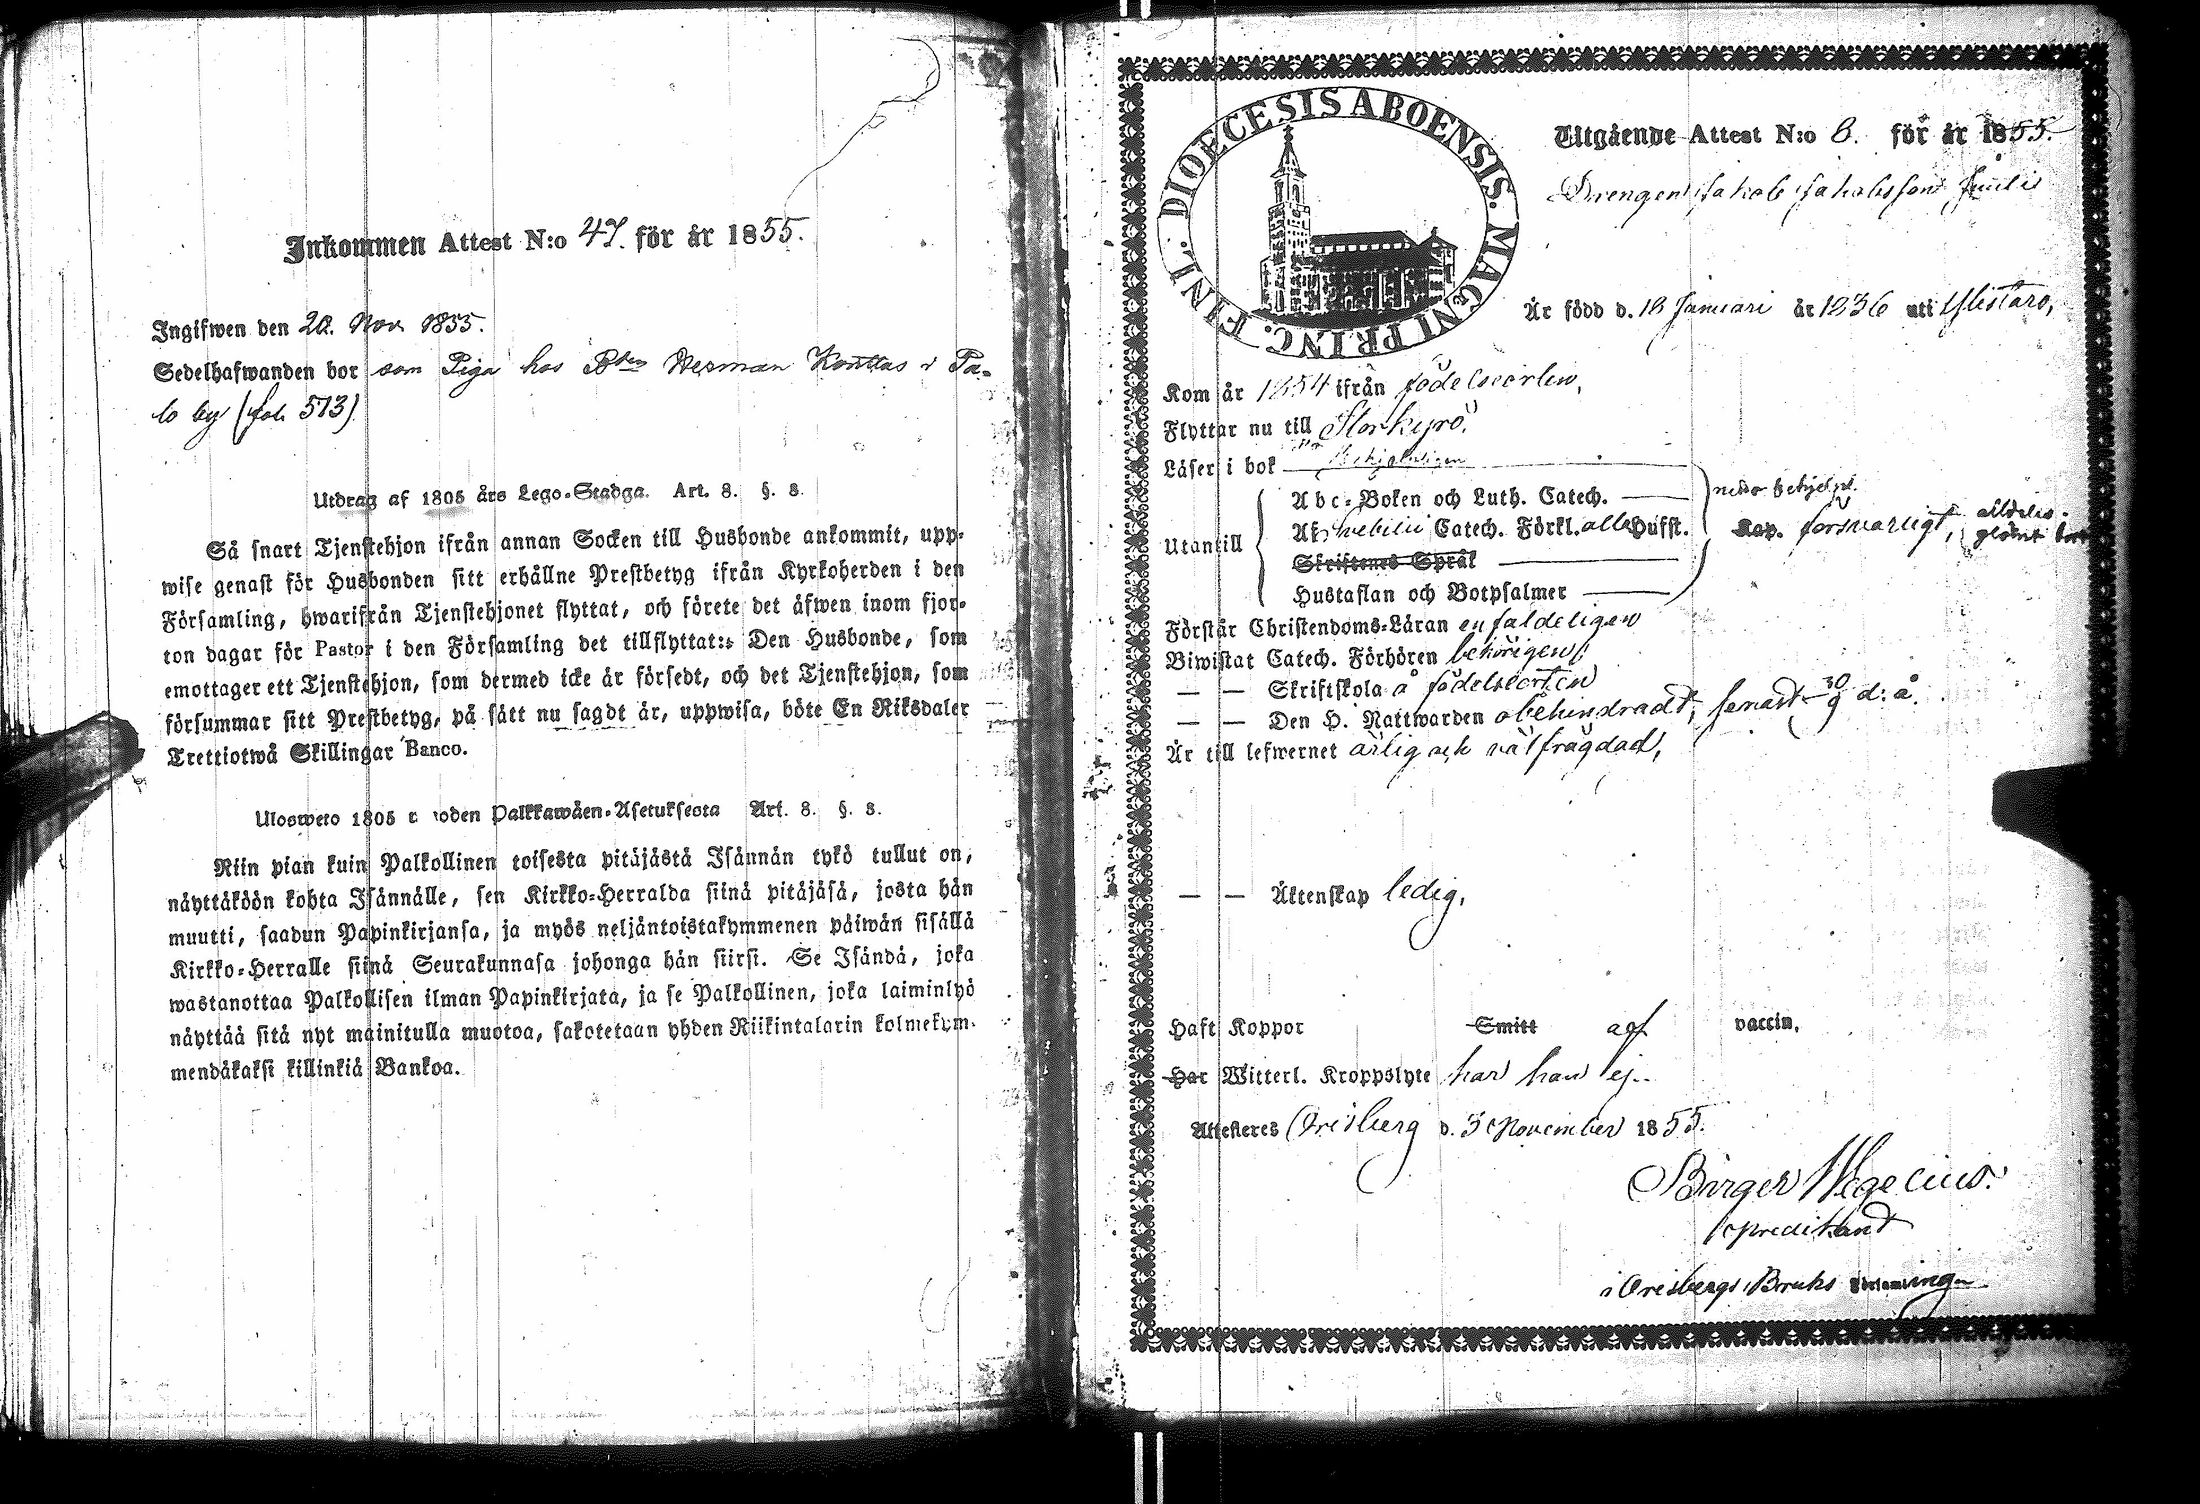 Inkommen Attest N:o 47. för år 1855.
Ingifwen den 20. Nov 1855.
Sedelhafwanden bor som Piga hos Herman Kontas i Pa-
lo by (fol. 513)
Utdrag af 1805 års Lego-Stadga. Art. 8. §. 8.
Så snart Tjenstehjon ifrån annan Socken till Husbonde ankommit, upp-
wise genast för Husbonden sitt erhållne Prestbetyg ifrån Kyrkoherden i den
Församling, hwarifrån Tjenstehjonet flyttat, och förete det äfwen inom fjor-
ton dagar för Pastor i den Församling det tillflyttat: Den Husbonde, som
emottager ett Tjenstehjon, som dermed icke är försedt, och det Tjenstehjon, som
försummar sitt Prestbetyg, på sätt nu sagdt är, uppwisa, böte En Riksdaler
Trettiotwå Skillingar Banco.
Ulosweto 1805 woden Palkkawäen-Asetuksesta Art. 8. §. 8.
Niin pian kuin Palkollinen toisesta pitäjästä Isännän tykö tullut on,
näyttäköön kohta Isännälle, sen Kirkko-Herralda siinä pitäjäsä, josta hän
muutti, saadun Papinkirjansa, ja myös neljäntoistakymmenen päiwän sisällä
Kirkko-Herralle siinä Seurakunnasa johonga hän siirsi. Se Isändä, joka
wastanottaa Palkollisen ilman Papinkirjata, ja se Palkollinen, joka laiminlyö
näyttää sitä nyt mainitulla muotoa, sakotetaan yhden Riikintalarin kolmekym-
mendäkaksi killinkiä Bankoa.
DIOECESIS ABOENSIS. MAGNI PRINC. FINL.
Utgående Attest N:o 8. för år 1855.
Drengen Jakob Jakobsson
Är född d. 18 Januari år 1836 uti Ylistaro,
Kom år 1854 ifrån födelseorten,
Flyttar nu till Storkyro.
Läser i bok
Abc-Boken och Luth. Catech.
Utantill Svebilii Catech. Förkl. alla Hufst. försvarligt, alldeles
Skriftenes Språk
Hustaflan och Botpsalmer
Förstår Christendoms-Läran enfaldeligen
Biwistat Catech. Förhören behörigen
— — Skriftskola å födelseorten
— — Den H. Nattwarden obehindradt, senast 30/9 d: å.
Är till lefwernet ärlig och välfrägdad,
— — Äktenskap ledig,
Haft Koppor Smitt af vaccin,
Har Witterl. Kroppslyte har han ej.
Attesteres Orisberg d. 3 November 1855.
Birger Hegelius.
predikant
i Orisbergs Bruks Församling